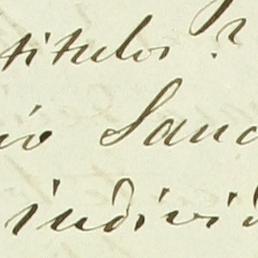 titulos?
io Sanc
individ